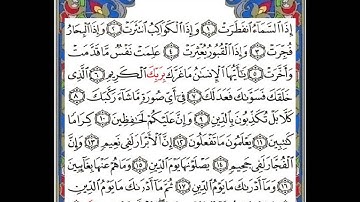 إِذَا ٱلسَّمَآءُ ٱنفَطَرَتْ ۝١ وَإِذَا ٱلْكَوَاكِبُ ٱنتَثَرَتْ ۝٢ وَإِذَا ٱلْبِحَارُ
فُجِّرَتْ ۝٣ وَإِذَا ٱلْقُبُورُ بُعْثِرَتْ ۝٤ عَلِمَتْ نَفْسٌ مَّا قَدَّمَتْ
وَأَخَّرَتْ ۝٥ يَٰٓأَيُّهَا ٱلْإِنسَٰنُ مَا غَرَّكَ بِرَبِّكَ ٱلْكَرِيمِ ۝٦ ٱلَّذِى
خَلَقَكَ فَسَوَّىٰكَ فَعَدَلَكَ ۝٧ فِىٓ أَىِّ صُورَةٍ مَّا شَآءَ رَكَّبَكَ ۝٨
كَلَّا بَلْ تُكَذِّبُونَ بِٱلدِّينِ ۝٩ وَإِنَّ عَلَيْكُمْ لَحَٰفِظِينَ ۝١٠ كِرَامًا
كَٰتِبِينَ ۝١١ يَعْلَمُونَ مَا تَفْعَلُونَ ۝١٢ إِنَّ ٱلْأَبْرَارَ لَفِى نَعِيمٍ ۝١٣ وَإِنَّ
ٱلْفُجَّارَ لَفِى جَحِيمٍ ۝١٤ يَصْلَوْنَهَا يَوْمَ ٱلدِّينِ ۝١٥ وَمَا هُمْ عَنْهَا بِغَآئِبِينَ
۝١٦ وَمَآ أَدْرَىٰكَ مَا يَوْمُ ٱلدِّينِ ۝١٧ ثُمَّ مَآ أَدْرَىٰكَ مَا يَوْمُ ٱلدِّينِ